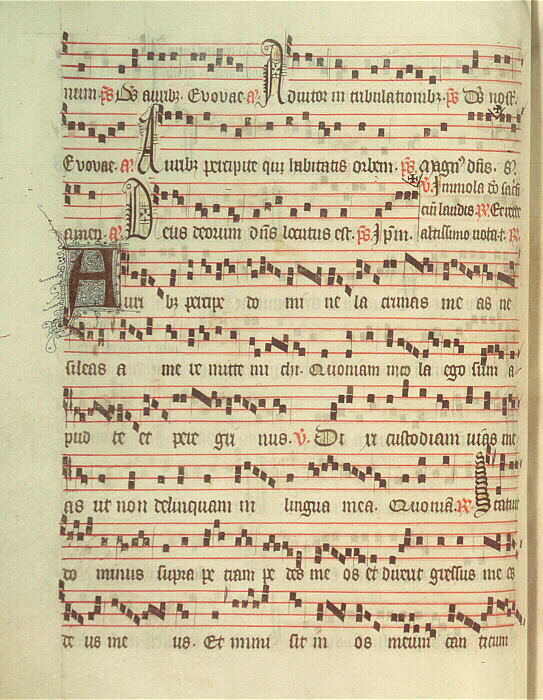 num. ps Ds auribz. Evovae. a. Adiutor in tribulationibz. ps Ds nost.
Evovae. a. Auribz percipite qui habitatis orbem. ps. Magn9 dns. S.
V. Immola do sacri
amen. a. Deus deorum dns locutus est. ps. Ipm. altissimo vota t. R.
Auribz percipe domine lacrimas meas ne
sileas a me remitte michi. Quoniam incola ego sum a
pud te et peregrinus. V. Dixi custodiam vias me
as ut non delinquam in lingua mea. Quonia. R. Statuit
dominus supra petram pedes meos et direxit gressus meos
deus meus. Et inmisit in os meum canticum